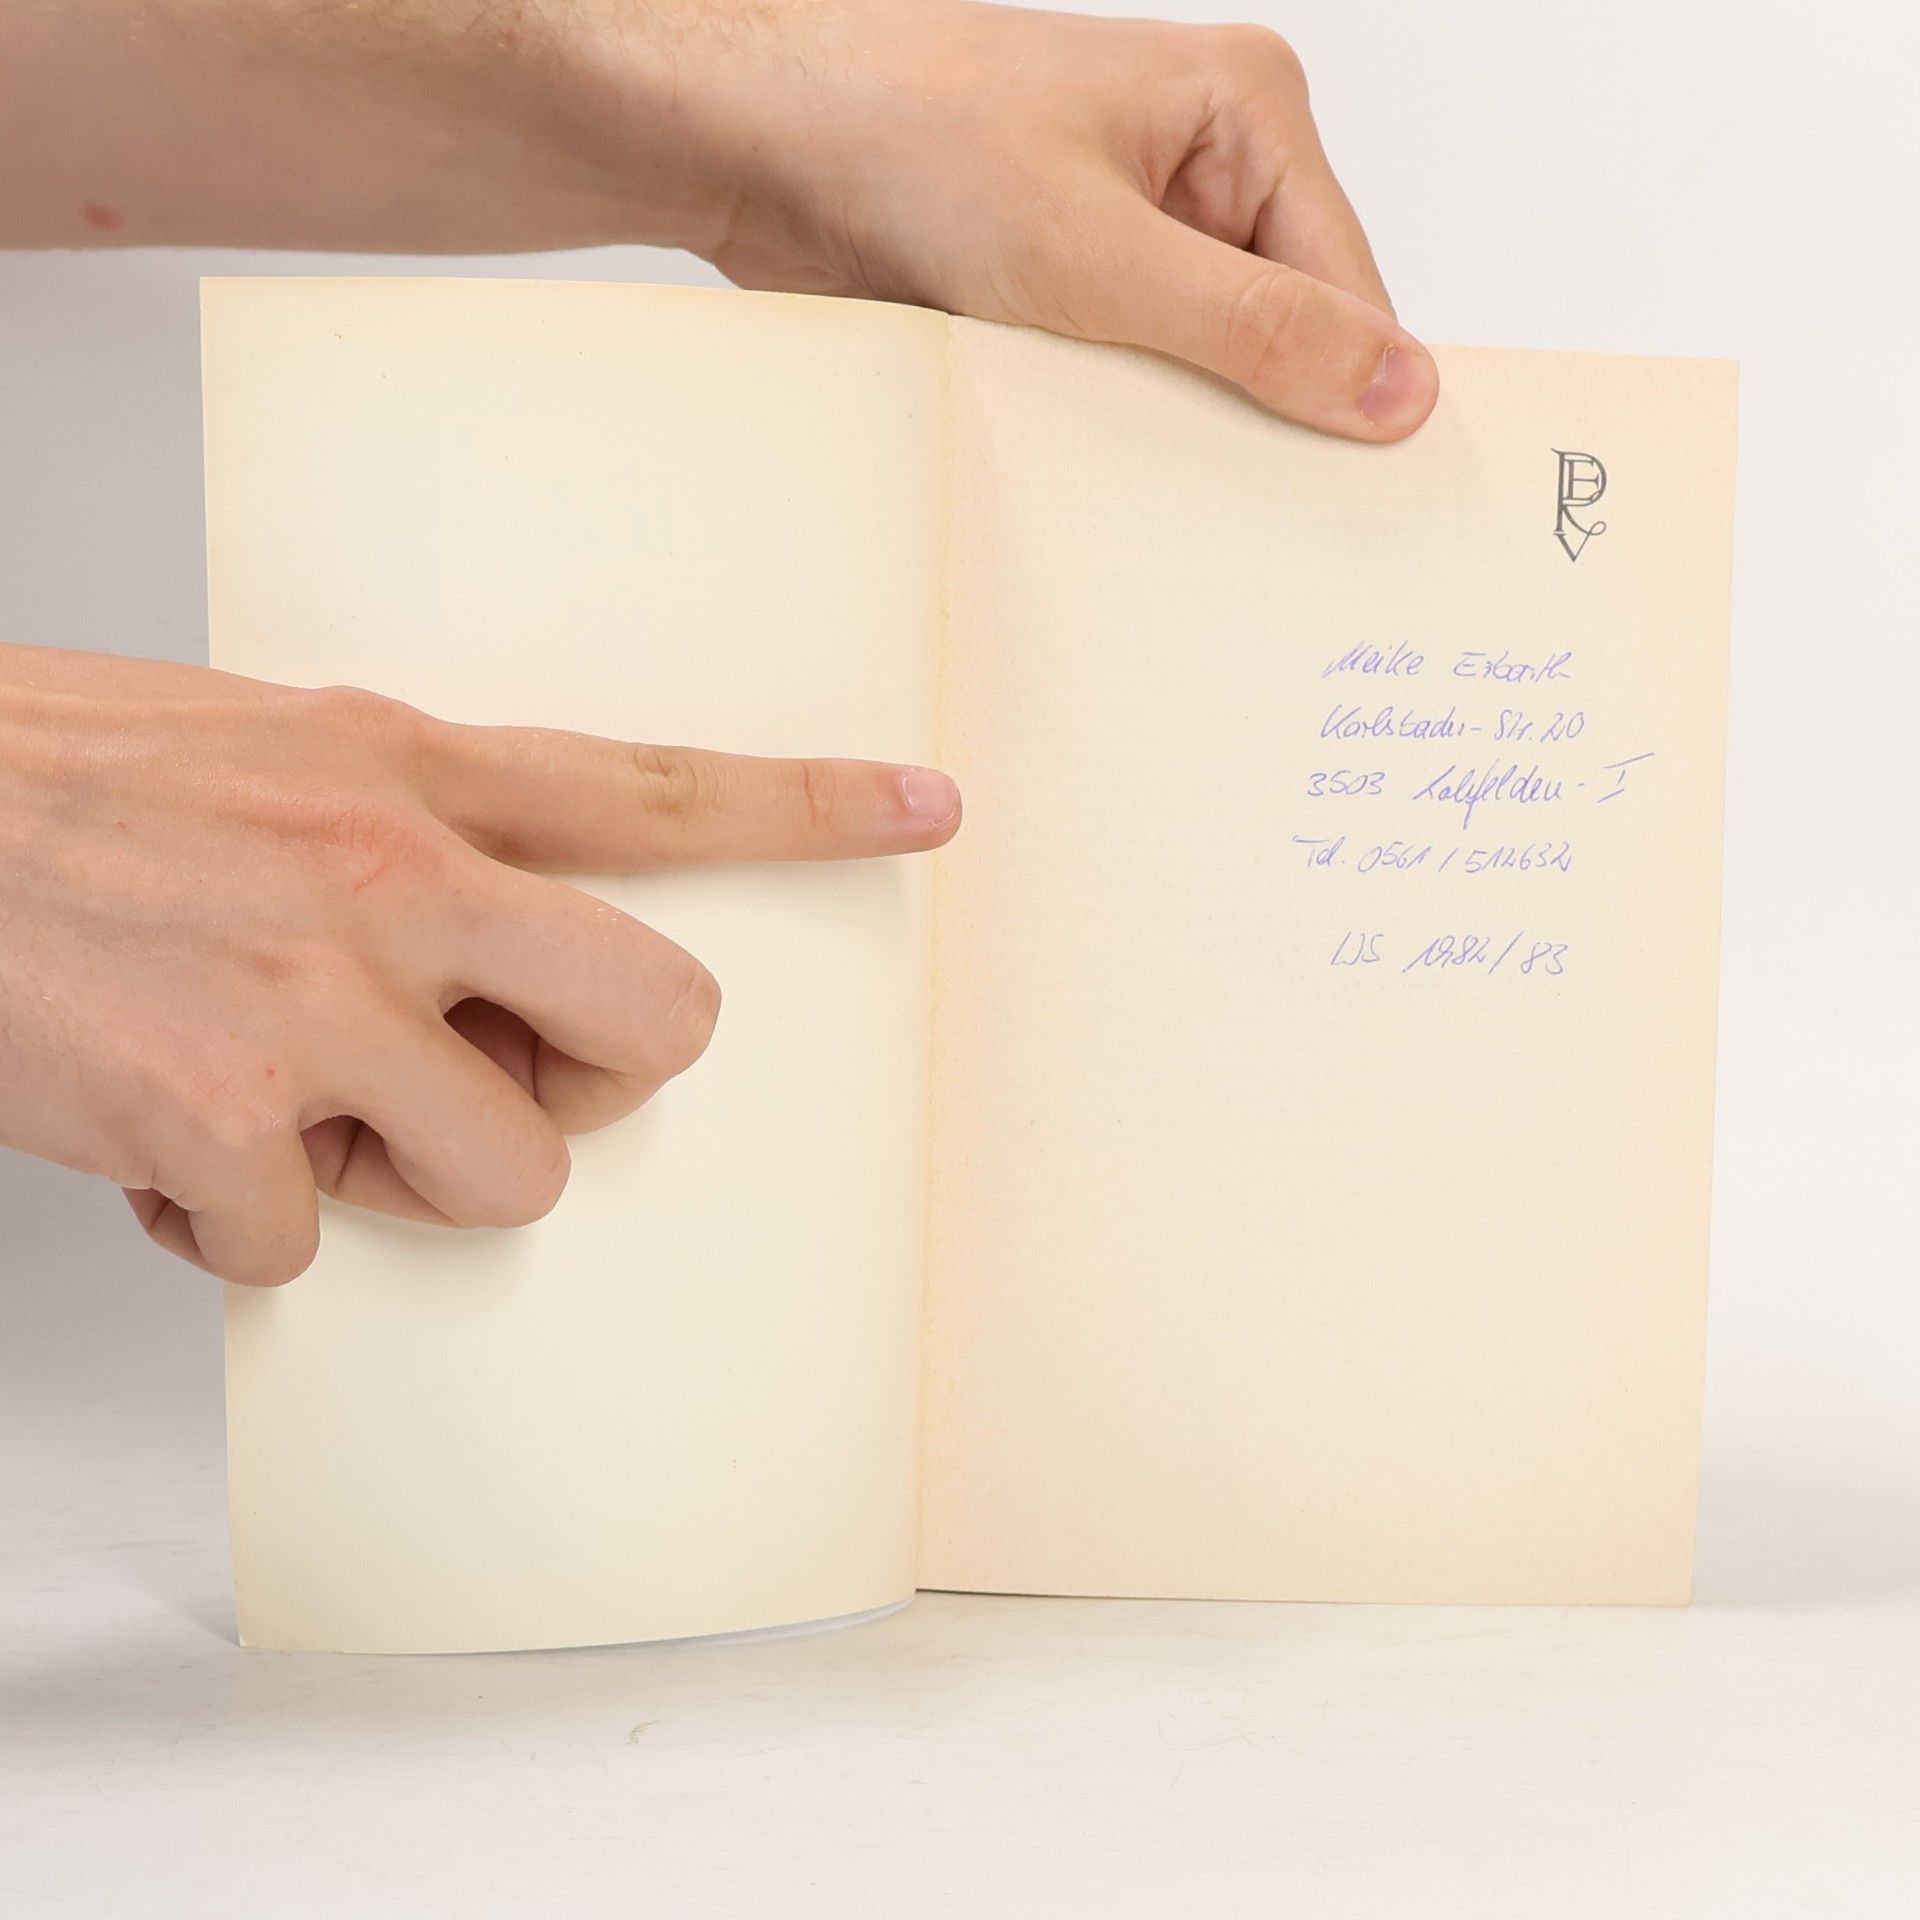 Meike Erbarth
Karlsbader-Str. 20
3503 Lohfelden-I
Tel. 0561/512632
WS 1982/83